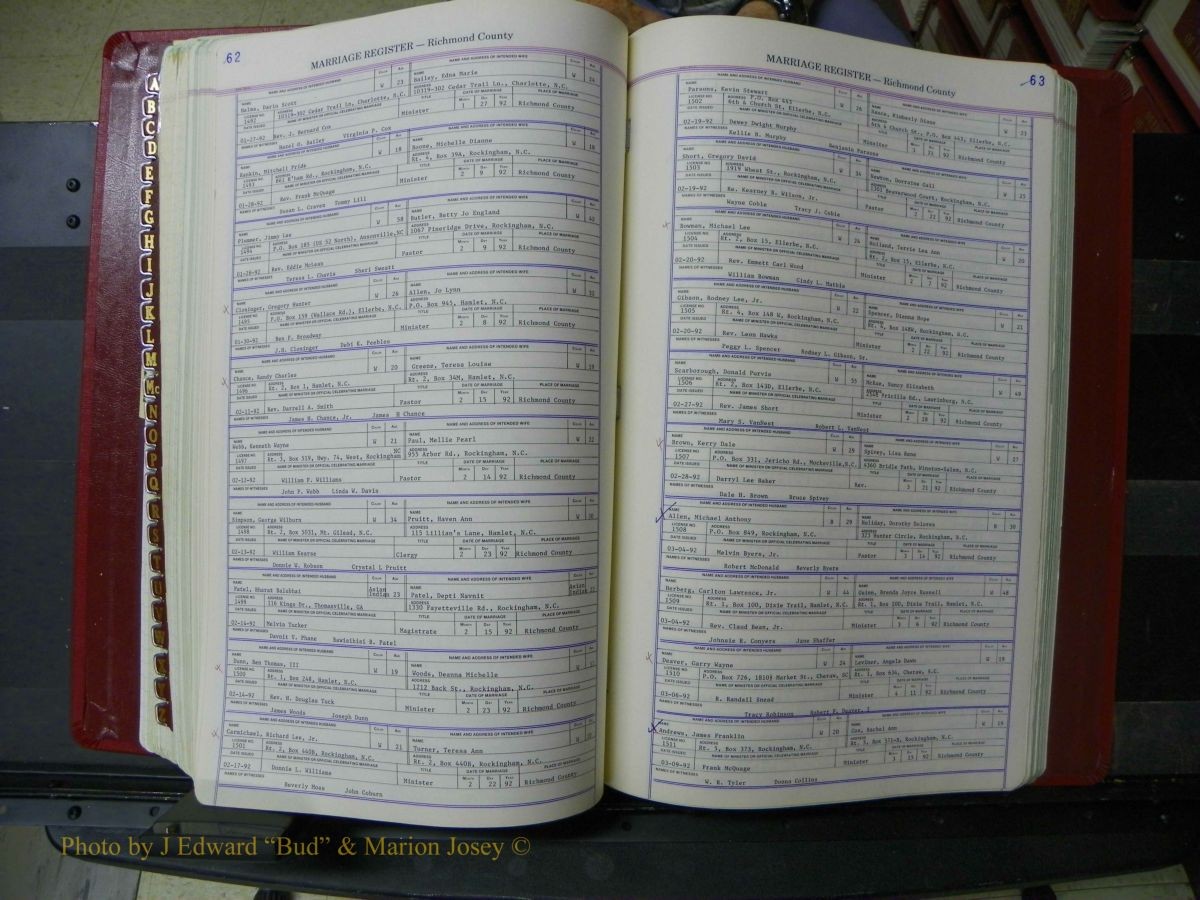 62
MARRIAGE REGISTER — Richmond County
NAME AND ADDRESS OF INTENDED HUSBAND
NAME AND ADDRESS OF INTENDED WIFE
Helms, Darin Scott 23 Bailey, Edna Marie W 24
1492 10319-302 Cedar Trail Ln, Charlotte, N.C. 10319-302 Cedar Trail Ln., Charlotte, N.C.
01-27-92 Rev. J. Bernard Cox Minister 1 27 92 Richmond County
Hazel O. Bailey Virginia P. Cox
Rankin, Mitchell Pride W 18 Boone, Michelle Dianne W 18
1493 Rockingham, N.C. Rt. 4, Box 39A, Rockingham, N.C.
01-28-92 Rev. Frank McQuage Minister 2 9 92 Richmond County
Susan L. Craven Tommy Lill
Plummer, Jimmy Lee W 58 Butler, Betty Jo England W 40
1494 P.O. Box 185 (US 52 North), Ansonville, NC 1067 Pineridge Drive, Rockingham, N.C.
01-28-92 Rev. Eddie McLean Pastor 2 9 92 Richmond County
Teresa L. Chavis Sheri Sweatt
Clesinger, Gregory Hunter W 26 Allen, Jo Lynn W
1495 P.O. Box 159 (Wallace Rd.), Ellerbe, N.C. P.O. Box 945, Hamlet, N.C.
01-30-92 Ben F. Broadway Minister 2 8 92 Richmond County
J.H. Clesinger Debi K. Peebles
Chance, Randy Charles W 20 Greene, Teresa Louise W 19
1496 Rt. 2, Box 1, Hamlet, N.C. Rt. 2, Box 34M, Hamlet, N.C.
02-11-92 Rev. Darrell A. Smith Pastor 2 15 92 Richmond County
James H. Chance, Jr. James H Chance
Webb, Kenneth Wayne W 21 Paul, Mellie Pearl W 22
1497 Rt. 3, Box 519, Hwy. 74, West, Rockingham NC 955 Arbor Rd., Rockingham, N.C.
02-12-92 William F. Williams Pastor 2 14 92 Richmond County
John P. Webb Linda W. Davis
Simpson, George Wilburn W 34 Pruitt, Haven Ann W 30
1498 Rt. 2, Box 5031, Mt. Gilead, N.C. 115 Lillian's Lane, Hamlet, N.C.
02-13-92 William Kearse Clergy 2 23 92 Richmond County
Donnie W. Robson Crystal L Pruitt
Patel, Bharat Balubhai Asian Indian 23 Patel, Depti Navnit Asian Indian
1499 116 Kings Dr., Thomasville, GA 1330 Fayetteville Rd., Rockingham, N.C.
02-14-92 Melvin Tucker Magistrate 2 15 92 Richmond County
Davnit V. Phane R. Patel
Dunn, Ben Thomas, III W 19 Woods, Deanna Michelle W
1500 Rt. 1, Box 248, Hamlet, N.C. 1212 Back St., Rockingham, N.C.
02-14-92 Rev. H. Douglas Tuck Minister 2 23 92 Richmond County
James Woods Joseph Dunn
Carmichael, Richard Lee, Jr. W 21 Turner, Teresa Ann
1501 Rt. 2, Box 440B, Rockingham, N.C. Rt. 2, Box 440B, Rockingham, N.C.
02-17-92 Donnie L. Williams Minister 2 22 92 Richmond County
Beverly Moss John Coburn
63
MARRIAGE REGISTER — Richmond County
NAME AND ADDRESS OF INTENDED HUSBAND
NAME AND ADDRESS OF INTENDED WIFE
Parsons, Kevin Stewart W 26 Kimberly Diane W 23
1502 P.O. Box 443 6th & Church St., Ellerbe, N.C. 6th & Church St., P.O. Box 443, Ellerbe, N.C.
02-19-92 Dewey Dwight Murphy Minister 2 21 92 Richmond County
Kellie B. Murphy Benjamin Parsons
Short, Gregory David W 34 Newton, Dorraina Gail W 25
1503 1919 Wheat St., Rockingham, N.C. 1301 Beaverwood Court, Rockingham, N.C.
02-19-92 Re. Kearney B. Wilson, Jr. Pastor 2 22 92 Richmond County
Wayne Coble Tracy J. Coble
Bowman, Michael Lee W 24 Holland, Terrie Lea Ann W 20
1504 Rt. 2, Box 15, Ellerbe, N.C. Rt. 2, Box 15, Ellerbe, N.C.
02-20-92 Rev. Emmett Carl Wood Minister 2 92 Richmond County
William Bowman Cindy L. Mathis
Gibson, Rodney Lee, Jr. W 22 Spencer, Dianna Hope W 21
1505 Rt. 4, Box 148 W, Rockingham, N.C. Rt. 4, Box 148W, Rockingham, N.C.
02-20-92 Rev. Leon Hawks Minister 2 22 92 Richmond County
Peggy L. Spencer Rodney L. Gibson, Sr.
Scarborough, Donald Purvis W 55 McRae, Nancy Elizabeth W 49
1506 Rt. 2, Box 143D, Ellerbe, N.C. Laurinburg, N.C.
02-27-92 Rev. James Short Minister 2 28 92 Richmond County
Mary S. VanNest Robert L. VanNest
Brown, Kerry Dale W 29 Spivey, Lisa Anne W 27
1507 P.O. Box 331, Jericho Rd., Mocksville, N.C. 4360 Bridle Path, Winston-Salem, N.C.
02-28-92 Darryl Lee Baker Rev. 3 21 92 Richmond County
Dale H. Brown Bruce Spivey
Allen, Michael Anthony B 29 Holiday, Dorothy Delores B 30
1508 P.O. Box 849, Rockingham, N.C. 373 Hunter Circle, Rockingham, N.C.
03-04-92 Melvin Byers, Jr. Pastor 3 14 92 Richmond County
Robert McDonald Beverly Byers
Herberg, Carlton Lawrence, Jr. W 44 Guinn, Brenda Joyce Russell W 48
1509 Rt. 1, Box 100, Dixie Trail, Hamlet, N.C. Rt. 1, Box 100, Dixie Trail, Hamlet, N.C.
03-04-92 Rev. Claud Bean, Jr. Minister 3 6 92 Richmond County
Johnsie E. Conyers Jane Shaffer
Deaver, Garry Wayne W 24 Leviner, Angela Dawn W 19
1510 P.O. Box 726, 1810S Market St., Cheraw, SC Rt. 1, Box 634, Cheraw, S.C.
03-06-92 R. Randall Snead Minister 4 11 92 Richmond County
Tracy Robinson Robert F. Deaver, J
Andrews, James Franklin W 20 Rachel Ann W 19
1511 Rt. 5, Box 373, Rockingham, N.C. Rt. 5, Box 371-B, Rockingham, N.C.
03-09-92 Frank McQuage Minister 3 15 92 Richmond County
W. R. Tyler Donna Collins
A
B
C
D
E
F
G
H
I
J
K
L
M
Mc
N
O
P
Q
R
S
T
Photo by J Edward “Bud” & Marion Josey ©